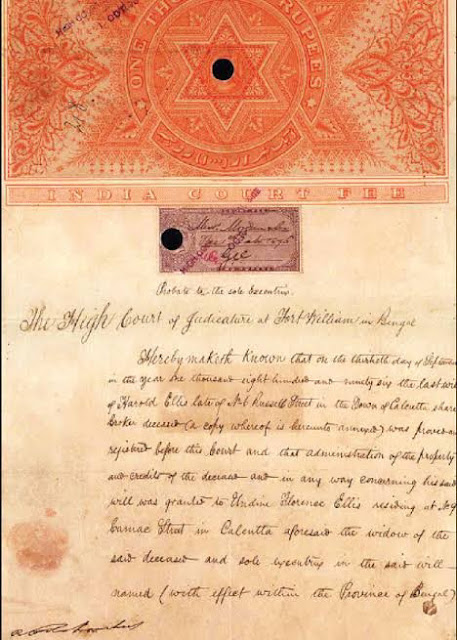 ONE THOUSAND RUPEES
INDIA COURT FEE
Probate to the sole Executrix.
The High Court of Judicature at Fort William in Bengal
Hereby maketh Known that on the thirtieth day of
in the year One thousand eight hundred and ninety six the last will
of Harold Ellis late of No 6 Russell Street in the Town of Calcutta share
Broker deceased (a copy whereof is hereunto annexed) was proved and
registered before this Court and that administration of the property
and credits of the deceased and in any way concerning his said
will was granted to Undine Florence Ellis residing at No 9
Camac Street in Calcutta aforesaid the widow of the
said deceased and sole executrix in the said will
named (with effect within the Province of Bengal)